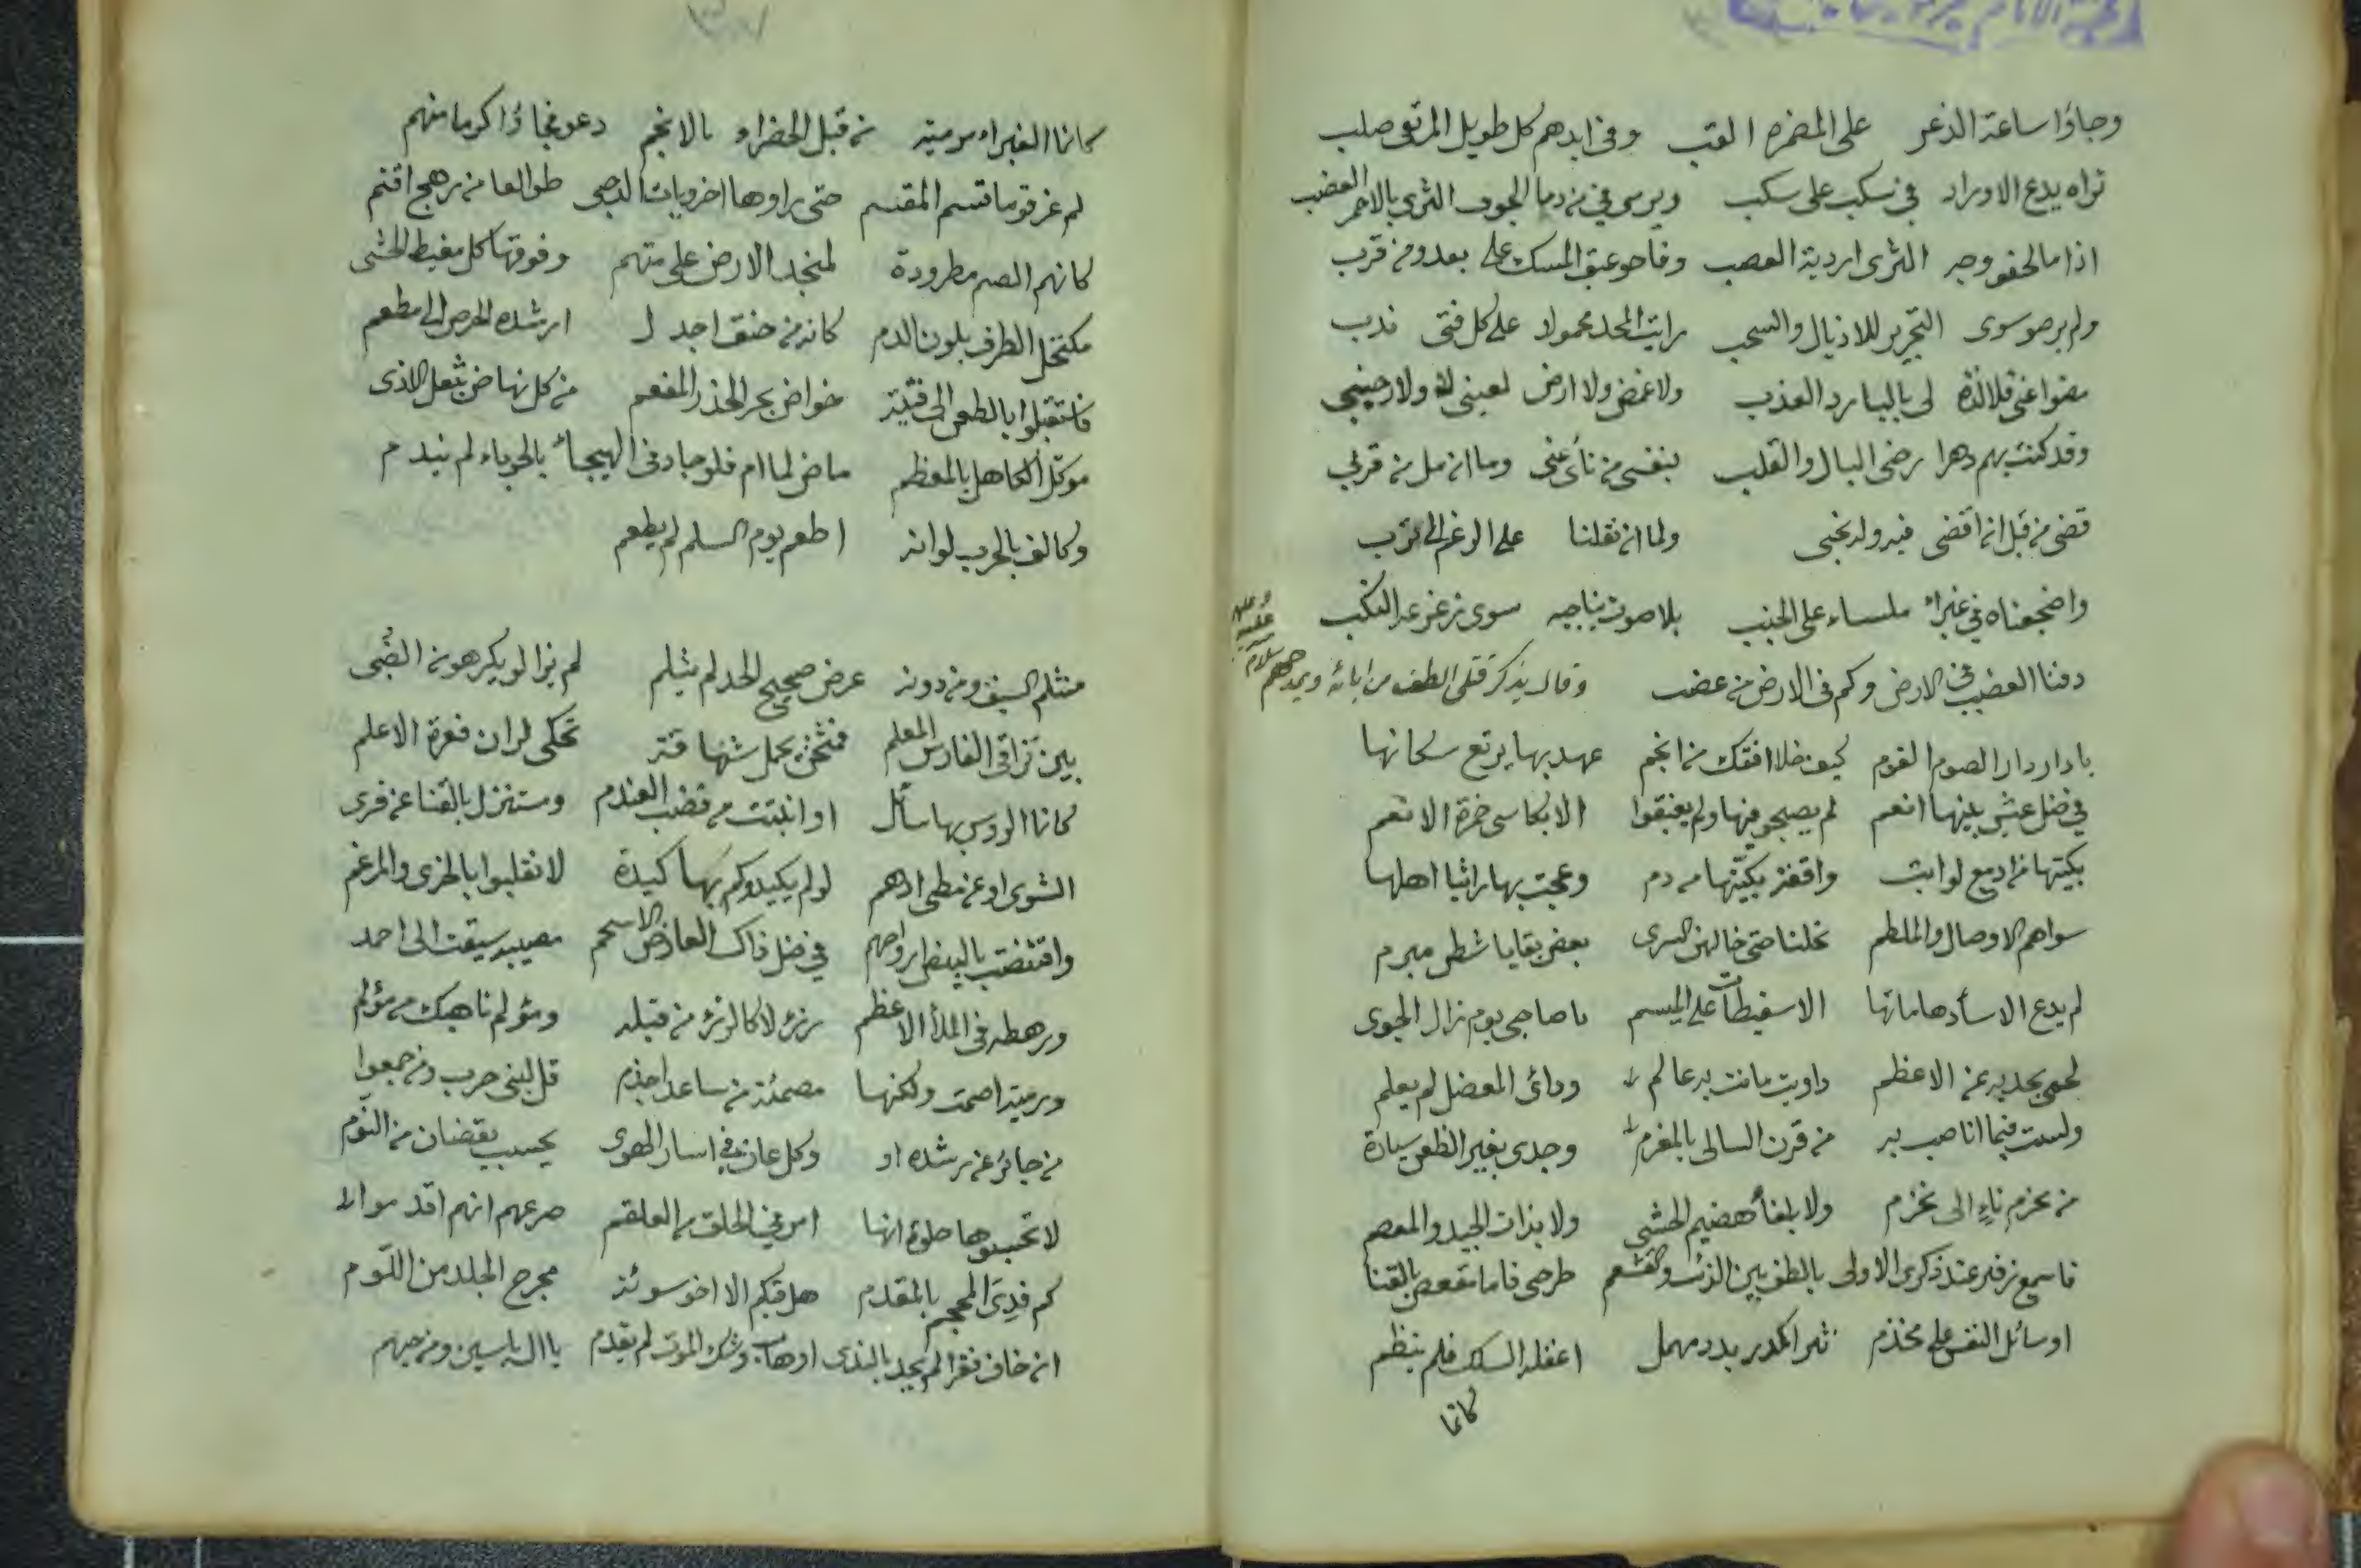 وجاؤا ساعة الذعر على المضمرة القب وفي ايدهم كل طويل المرتقى صلب
تراه يدع الاوراد في سكب على سكب ويرمي في من دما الجوف الثرى بالاحمر العضب
اذا مالحفو وجه الثرى اردية العصب وفاحو عبق المسك على بعد ومن قرب
ولم يرضو سوى التجرير للاذيال والسحب رايت المجد محمولا على كل فتى ندب
مضوا عني فلا لذة لي بالبارد العذب ولا غمض ولا ارض لعيني لا ولا جنبي
وقد كنت بهم دهرا رضي البال والقلب بنفسي من نأى عني وما ان مل من قربي
قضى من قبل ان اقضي فيه ولد نحبي ولما ان نقلنا على الرغم الى ترب
واضجعناه في غبراء ملساء على الجنب بلا صوت يناجيه سوى زعزعة النكب
دفنا العضب في الارض وكم في الارض من عضب وقال يذكر قتلى الطف من ابائه ويمدحهم
عليهم سلام
يا دار دار الصوم القوم كيف خلا افقك من انجم عهد بها يرتع سكانها
في ضل عيش بينها انعم لم يصبحو فيها ولم يغبقوا الا بكاسي خمرة الانعم
بكيتها من ادمع لو ابت واقفة بكيتها من دم وعجت بها راثيا اهلها
سواهم الاوصال والملطم نحلنا حتى خالهن السرى بعض بقايا شطن مبرم
لم يدع الاسأد هاماتها الا سقيطات على الميسم يا صاحبي يوم نزال الجوى
لحمي بحديه عن الاعظم داويت ما نت به عالم ودائي المعضل لم يعلم
ولست فيما انا صب به من قرن السالي بالمغرم وجدي بغير الظعن سيارة
من مخرم ناء الى مخرم ولا بلفاء هضيم الحشى ولا بذات الجيد والمعصم
فاسمع زفيري عند ذكرى الاولى بالطف بين الذئب والقشعم طرحى فاما مقعص بالقنا
او سائل النفس على مخذم نثرا كدر بدد مهمل اغفله السلك فلم ينظم
كانما
كانما الغبراء مرمية من قبل الخضراء بالانجم دعو فجاؤا كرما منهم
لم غرقو ما قسم المقسم حتى راوها اخريات الدجى طوالعا من رهج اقتم
كانهم الصم مطرودة لمنجد الارض على متهم وفوقها كل مغيظ الحشى
مكتحل الطرف بلون الدم كانه من حنق اجدل ارشده الحرص الى مطعم
فاستقبلوا بالطعن الى فتية خواض بحر الحذر المفعم من كل نهاض بثقل الاذى
موكل الكاهل بالمعظم ماض لما ام فلو جاد في الهيجاء بالحوباء لم يندم
وكالف بالحرب لو انه اطعم يوم السلم لم يطعم
منثلم السيف ومن دونه عرض صحيح الحد لم يثلم لم يزالو يكرهونه الضبى
بين تراقي الفارس المعلم فمثخن يحمل شهاقة تحكي لران فغرة الاعلم
كانما الروس بها سائل او انبتت من قضب العندم ومستنزل بالقنا عن قرى
الشوى او عن مطى ادهم لو لم يكيدوكم بها كيدة لا نقلبوا بالخزى والمرغم
واقتضت بالبيض ارواحهم في ضل ذاك العارض الاسحم مصيبة سيقت الى احمد
ورهطه في الملأ الاعظم رزء لا كالرزء من قبله ومؤلم ناهيك من مؤلم
ورمية اصمت ولكنها مصمئة من ساعد اجذم قل لبني حرب ومن جمعوا
من جائر عن رشده او وكل عان في اسار الهوى يحسب يقضان من النوم
لا تحسبوها حلوة انها امر في الحلق من العلقم صرعهم انهم اقدموا
كم فدي المحجم بالمقدم هل فيكم الا اخو سوئة مجرح الجلد من اللوم
ان خاف فقرا لم يجد بالندى او هاب وشك الموت لم يقدم يا ال ياسين ومن حبهم